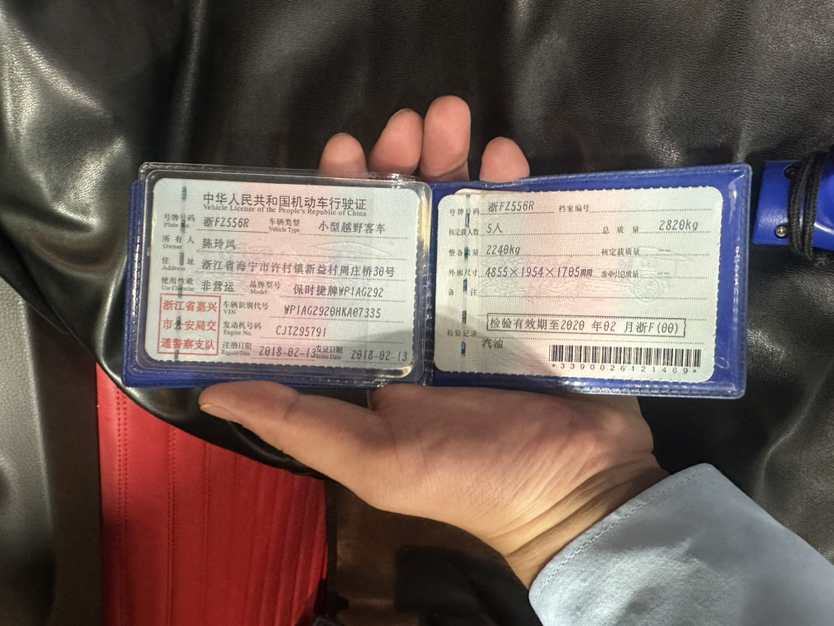 中华人民共和国机动车行驶证
Vehicle License of the People's Republic of China
号牌号码 浙FZ556R 车辆类型 小型越野客车
Plate No. Vehicle Type
所有人 陈玲风
Owner
住址 浙江省海宁市许村镇新益村周庄桥30号
Address
使用性质 非营运 品牌型号 保时捷牌WP1AG292
Use Character Model
浙江省嘉兴
市公安局交
通警察支队
车辆识别代号 WP1AG2920HKA07335
VIN
发动机号码 CJT295791
Engine No.
注册日期 2018-02-13 发证日期 2018-02-13
Register Date Issue Date
号牌号码 浙FZ556R 档案编号
核定载人数 5人 总质量 2820kg
整备质量 2240kg 核定载质量
外廓尺寸 4855×1954×1705 准牵引总质量
备注
检验有效期至2020 年02 月浙F(00)
检验记录
汽油
*3390026121469*